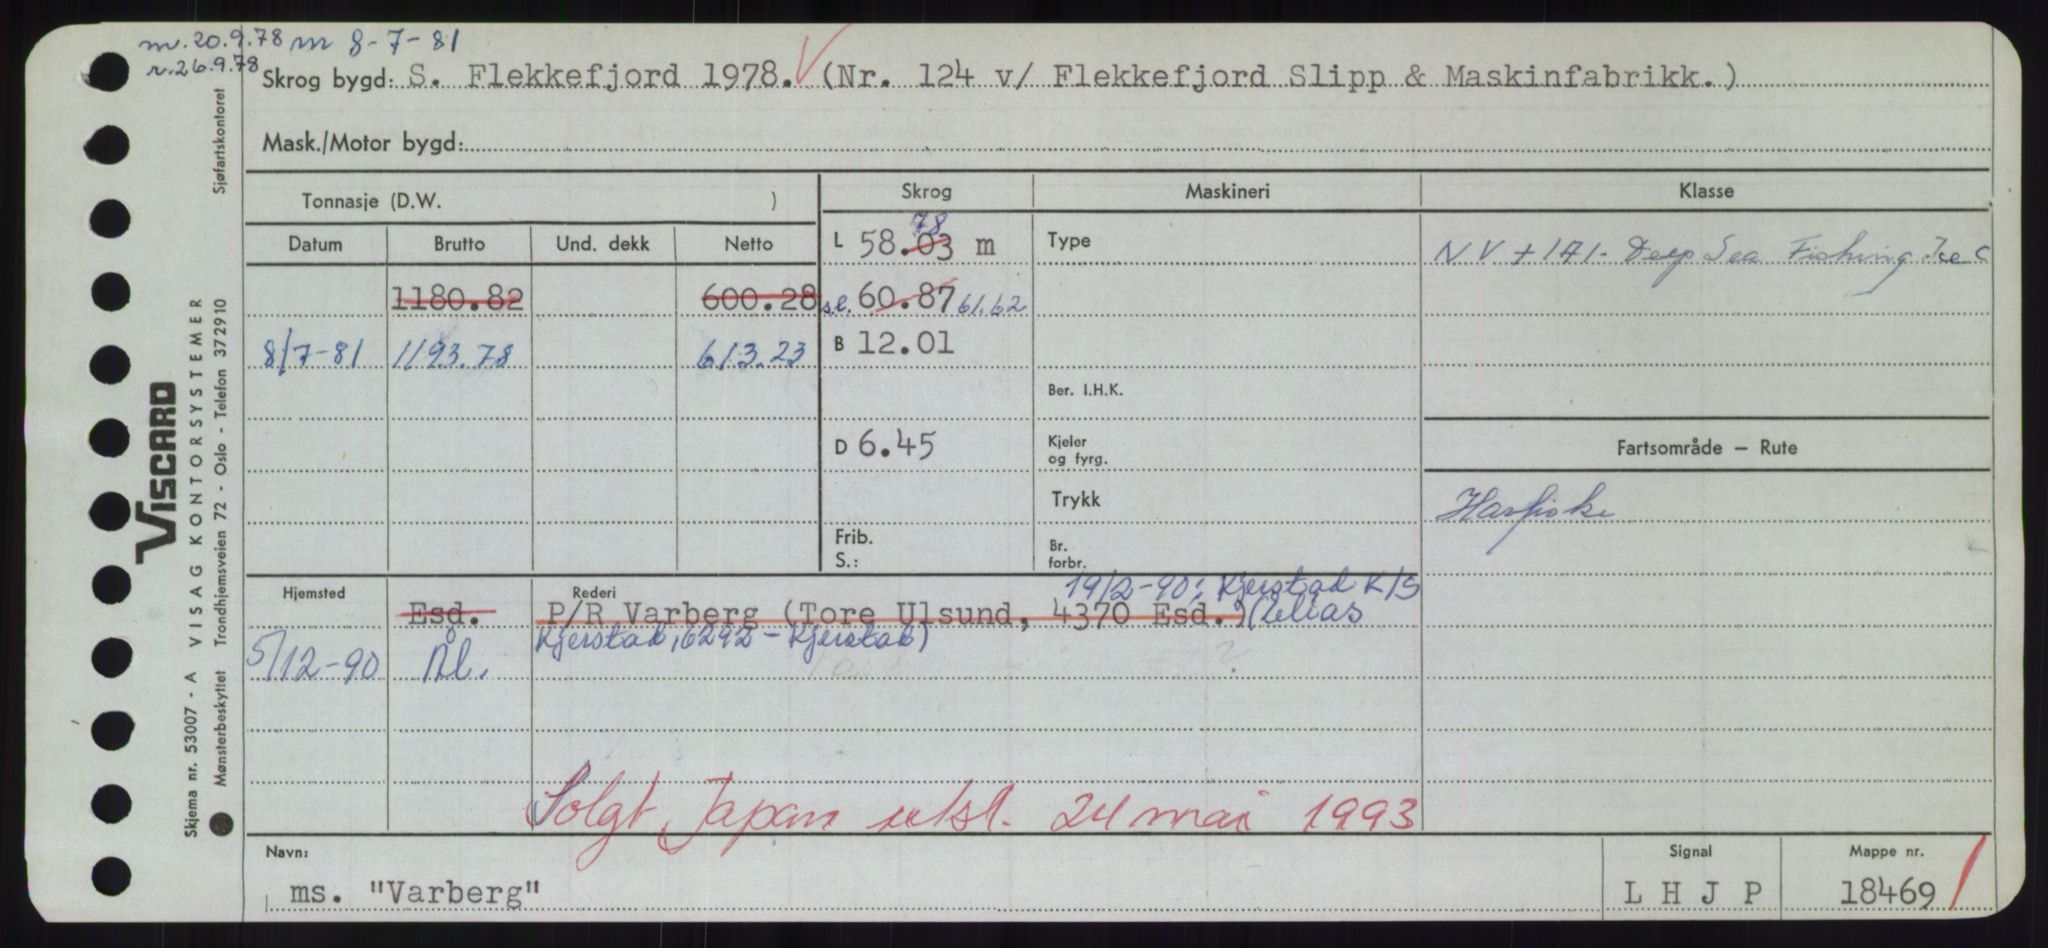 m. 20.9.78 m 8-7-81
r. 26.9.78
Skrog bygd: S. Flekkefjord 1978. (Nr. 124 v/ Flekkefjord Slipp & Maskinfabrikk.)
Mask./Motor bygd:
Tonnasje (D.W. ) Skrog Maskineri Klasse
Datum Brutto Und. dekk Netto L 58.03 78 m Type NV + 1A1- Deep Sea Fishing. Ice C
1180.82 600.28 s.l. 60.87 61.62
8/7-81 1193.78 613.23 B 12.01
Ber. I.H.K.
D 6.45 Kjeler og fyrg. Fartsområde — Rute
Trykk Havfiske
Frib. S.: Br. forbr.
Hjemsted Rederi 19/2-90: Kjerstad K/S
Esd. P/R Varberg (Tore Ulsund, 4370 Esd.) (Elias
Kjerstad, 6292 - Kjerstad)
5/12-90 Ål.
Solgt Japan utsl. 24 mai 1993
Navn: Signal Mappe nr.
ms. "Varberg" L H J P 18469
VISCARD
Skjema nr. 53007 - A VISAG KONTORSYSTEMER
Mønsterbeskyttet Trondhjemsveien 72 - Oslo - Telefon 372910 Sjøfartskontoret